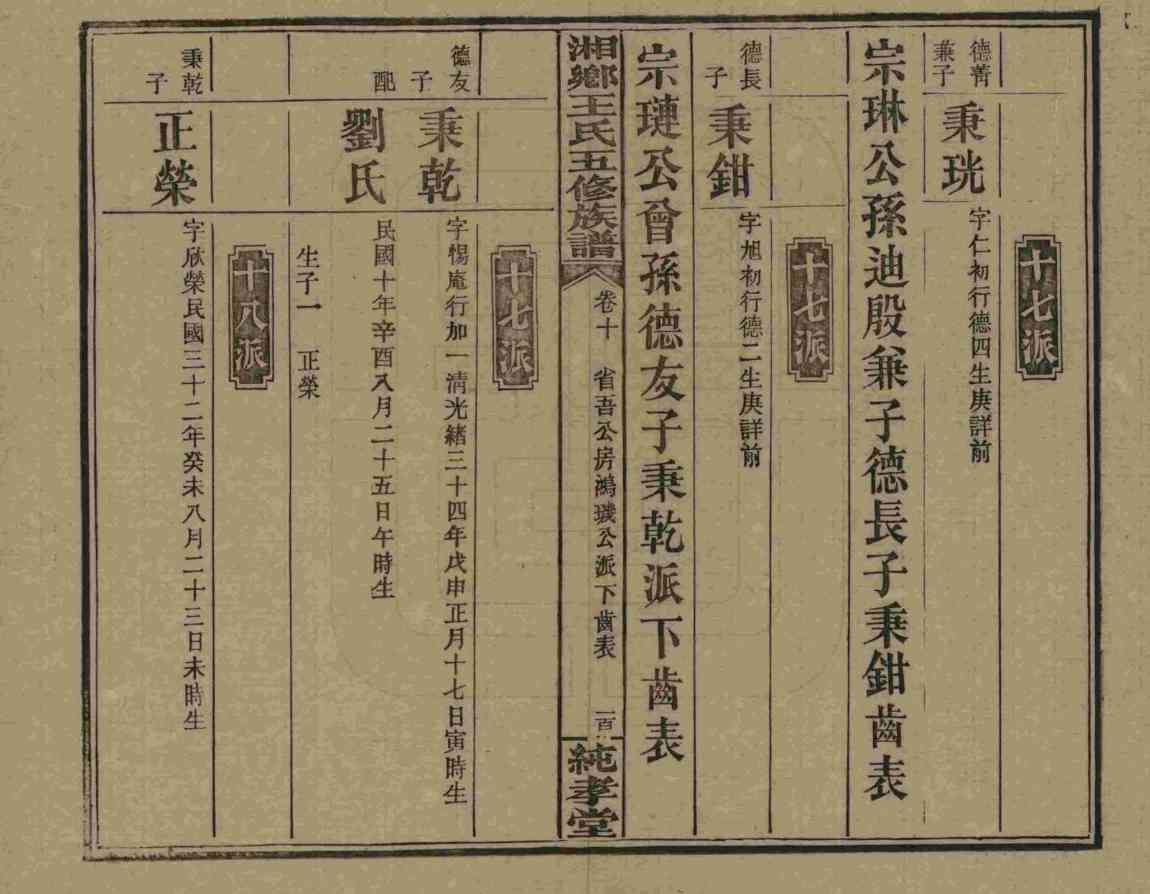 十七派
德菁兼子
秉珖
字仁初行德四生庚詳前
宗琳公孫迪殷兼子德長子秉鉗齒表
十七派
德長子
秉鉗
字旭初行德二生庚詳前
宗璉公曾孫德友子秉乾派下齒表
湘鄉王氏五修族譜
卷十 省吾公房鴻璣公派下齒表 一百
純孝堂
十七派
德友子
秉乾
字惕庵行加一清光緒三十四年戊申正月十七日寅時生
配
劉氏
民國十年辛酉八月二十五日午時生
生子一 正榮
十八派
秉乾子
正榮
字欣榮民國三十二年癸未八月二十三日未時生